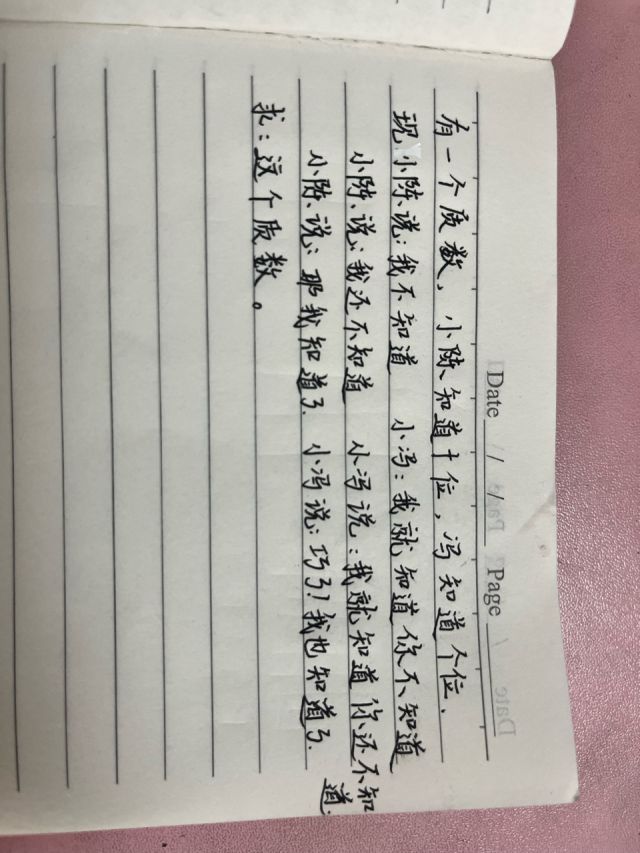 Date // / Page
有一个质数，小陈、知道十位，冯知道个位，
现小陈说：我不知道 小冯：我就知道你不知道
小陈、说：我还不知道 小冯说：我就知道你还不知道.
小陈、说：那我知道了. 小冯说：巧了！我也知道了.
求：这个质数。